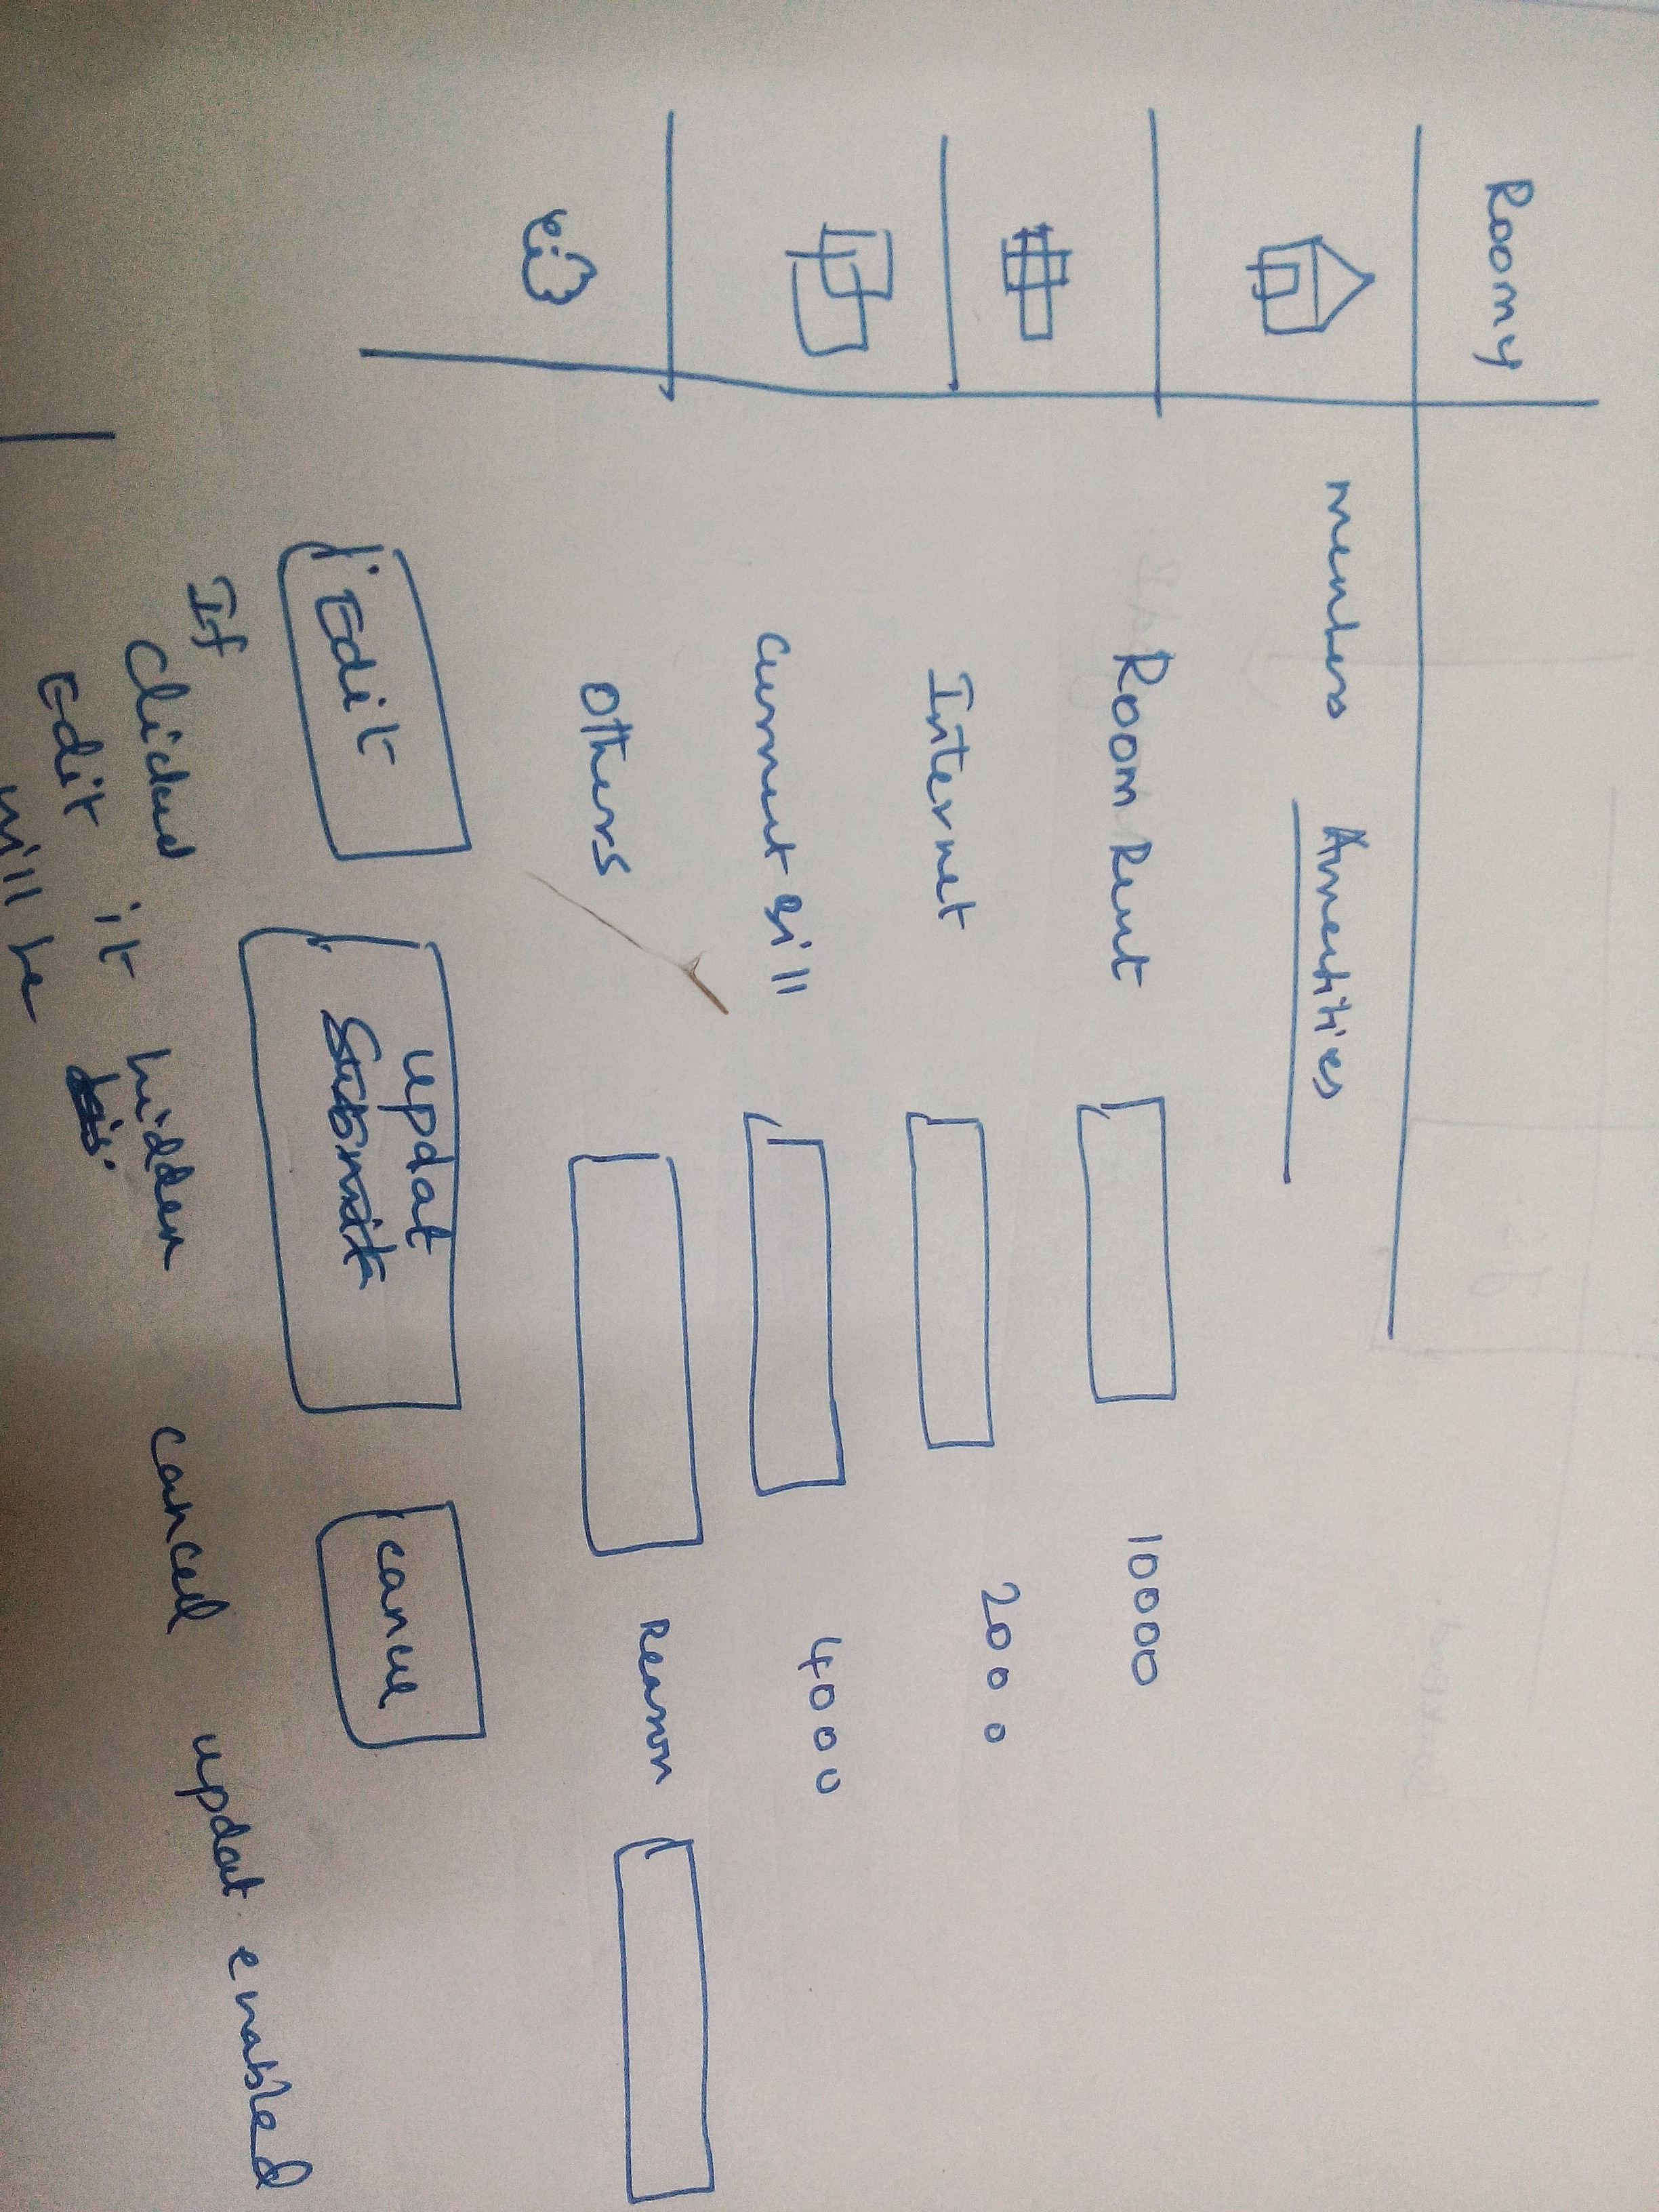 Roomy
members Amenities
Room Rent 10000
Internet 2000
Current Bill 4000
Others Reason
Edit Updat Cancel
If Clicked it hidden Cancel updat enabled
Edit
will be